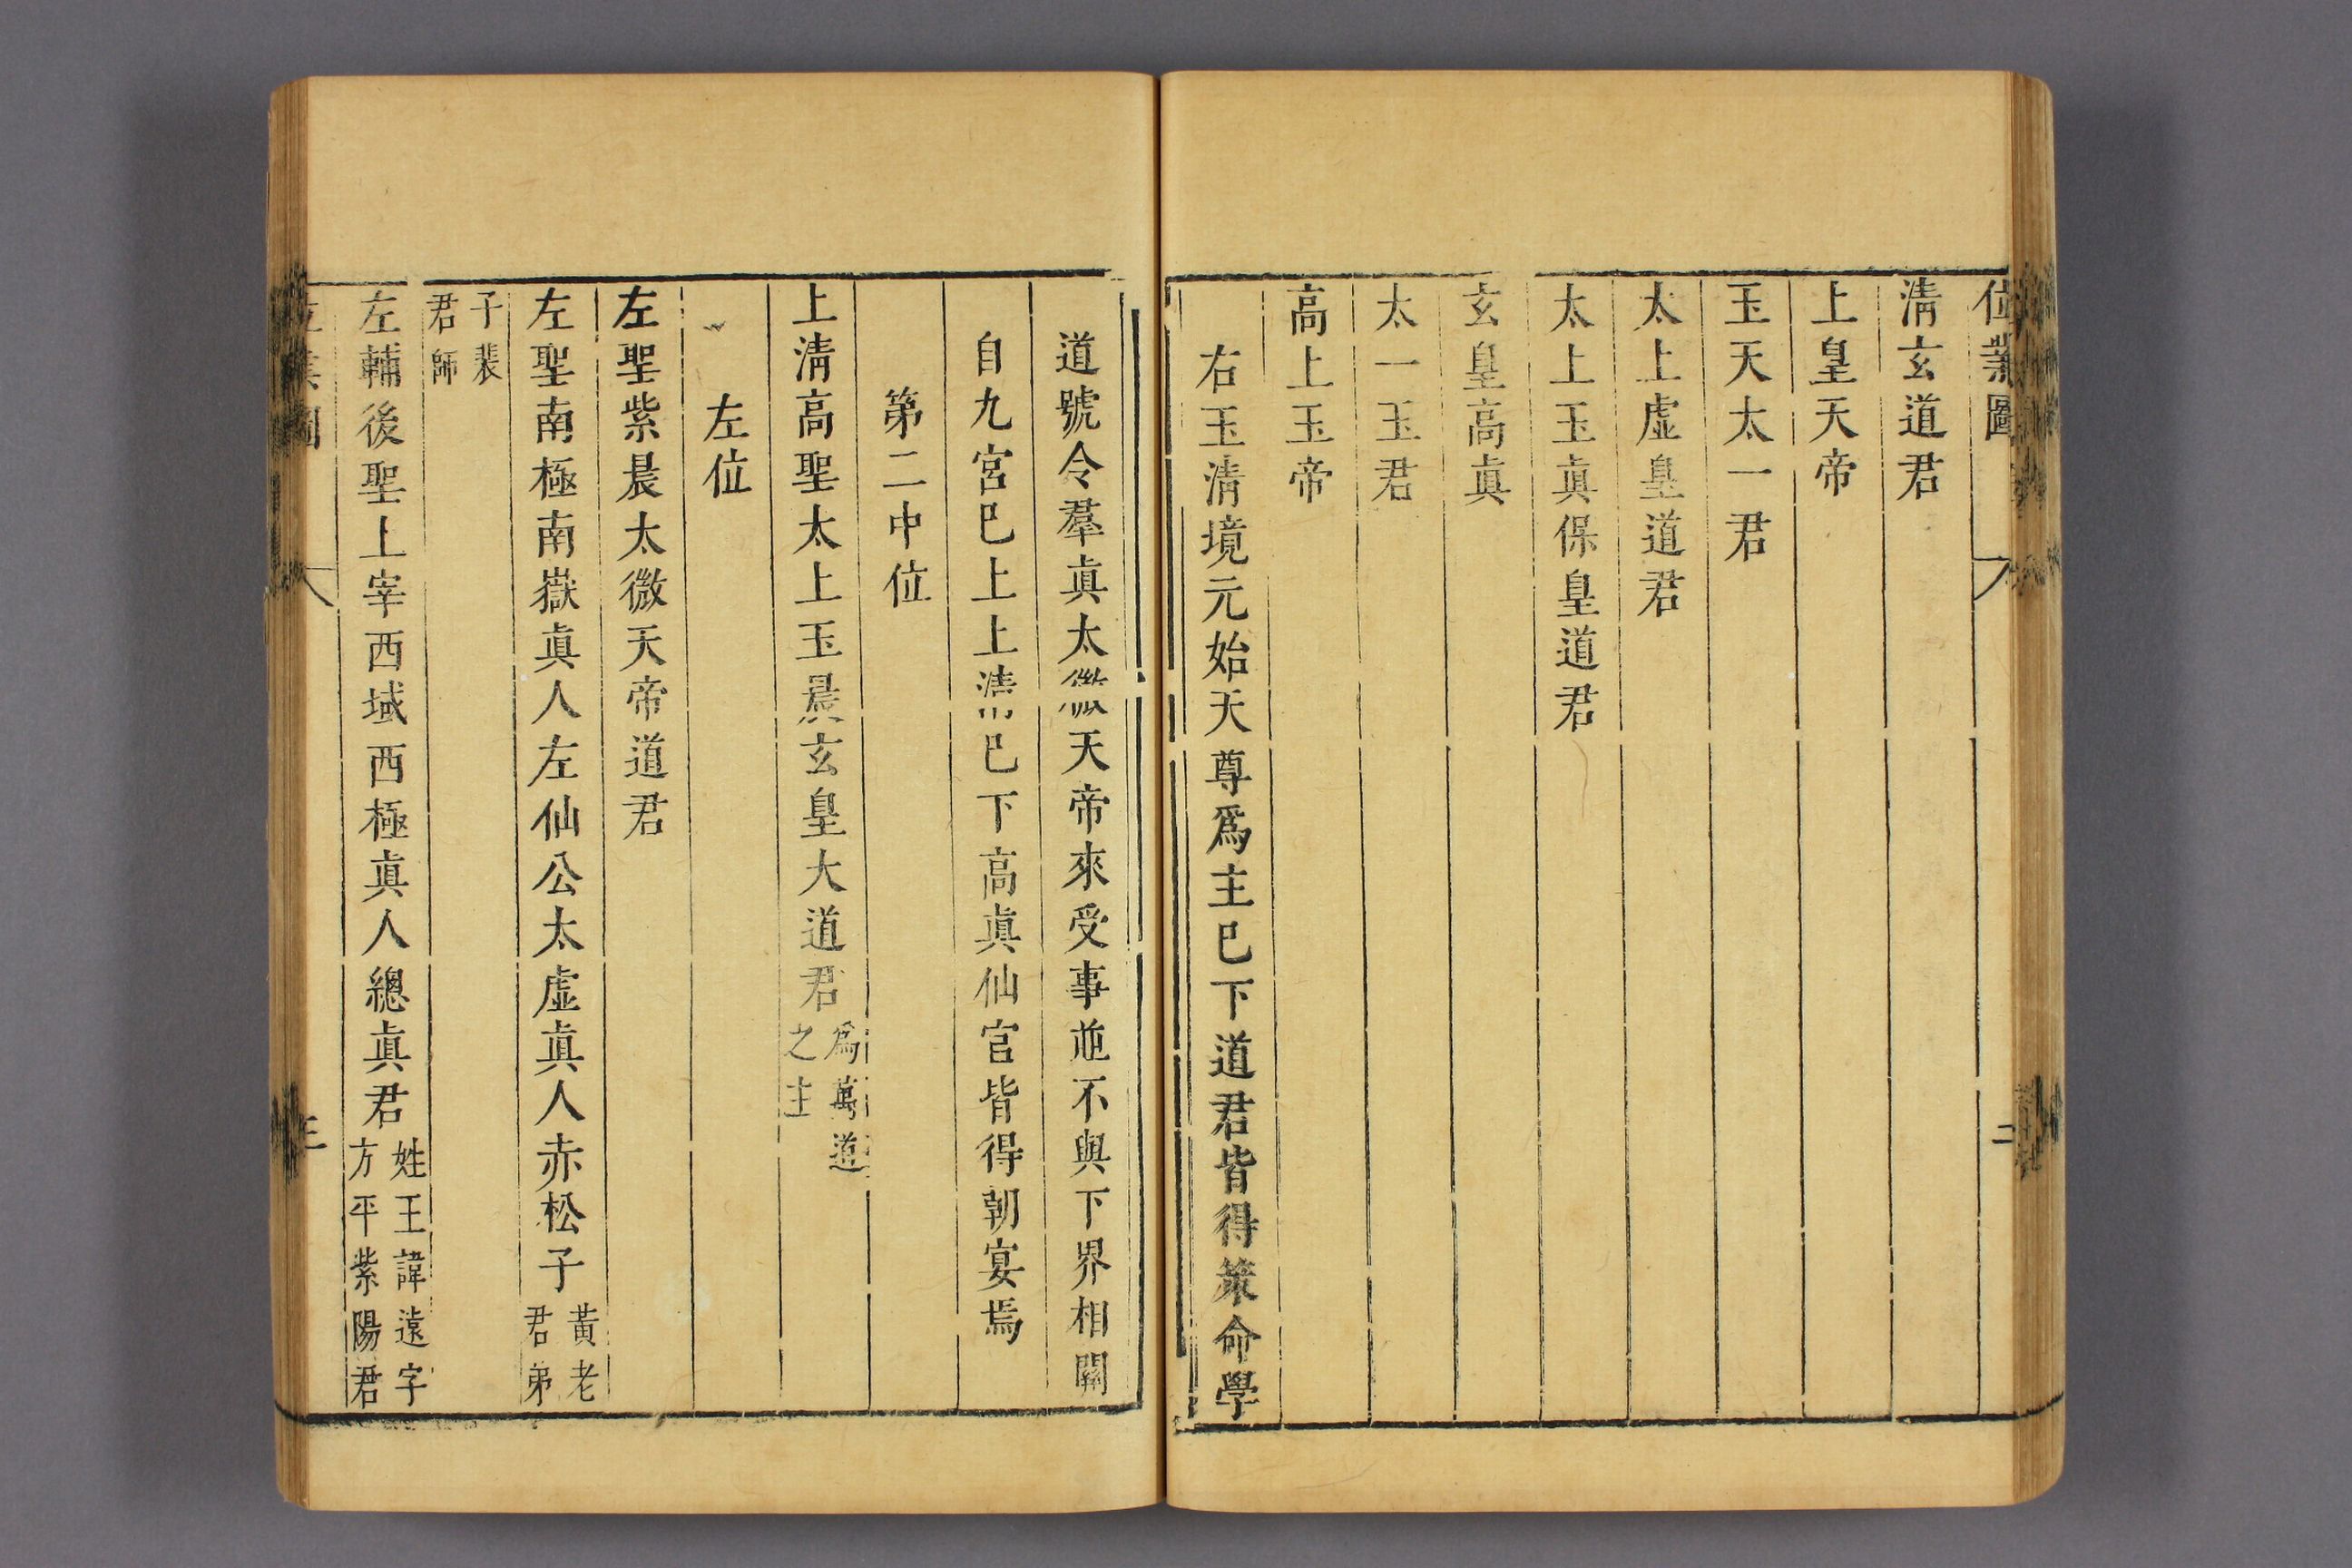 位業圖 二
淸玄道君
上皇天帝
玉天太一君
太上虛皇道君
太上玉眞保皇道君
玄皇高眞
太一玉君
高上玉帝
右玉淸境元始天尊爲主巳下道君皆得策命學
道號令羣眞太微天帝來受事並不與下界相關
自九宮巳上上淸巳下高眞仙官皆得朝宴焉
第二中位
上淸高聖太上玉晨玄皇大道君爲萬道
之主
左位
左聖紫晨太微天帝道君
左聖南極南嶽眞人左仙公太虛眞人赤松子黃老
君弟
子裴
君師
左輔後聖上宰西域西極眞人總眞君姓王諱遠字
方平紫陽君
位業圖 三